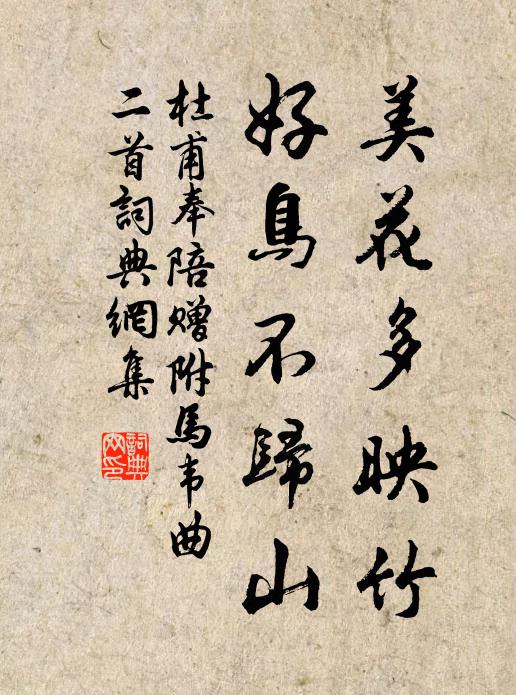 美花多映竹
好鳥不歸山
杜甫奉陪赠附馬韦曲
二首詞典網集
詞典網印